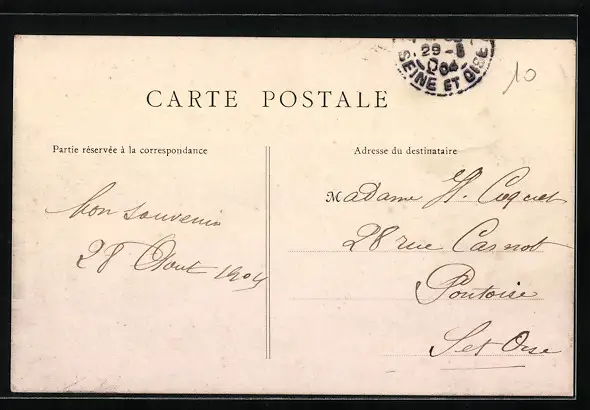 29 - 8
04
SEINE ET OISE
10
CARTE POSTALE
Partie réservée à la correspondance
Adresse du destinataire
bon souvenir
28 Aout 1904
Madame H. Coquet
28 rue Carnot
Pontoise
S et Oise